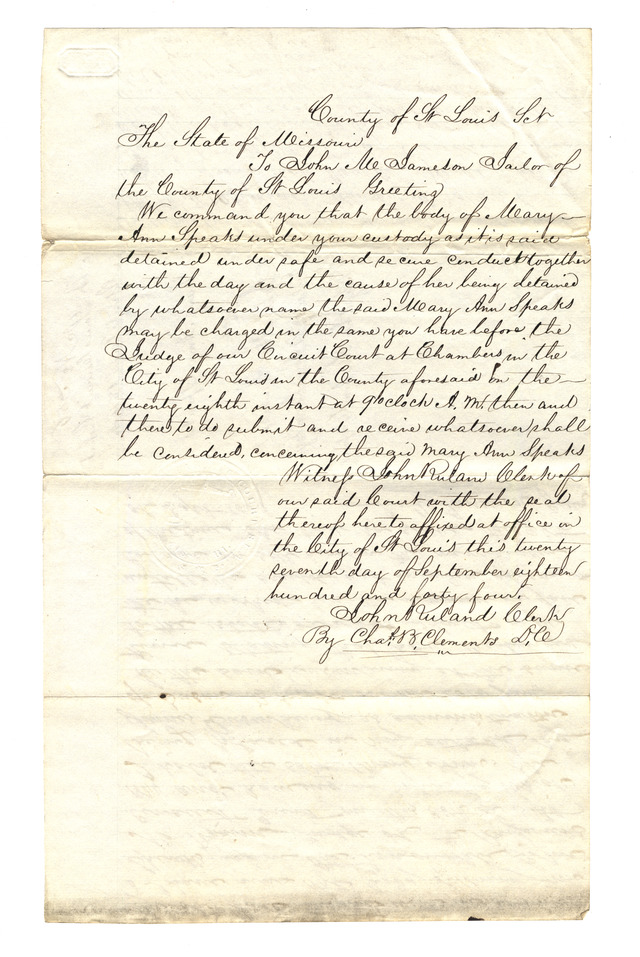 County of St Louis Sct
The State of Missouri
To John M Jameson Jailor of
the County of St Louis Greeting
We command you that the body of Mary
Ann Speaks under your custody as it is said
detained under safe and secure conduct together
with the day and the cause of her being detained
by whatsoever name the said Mary Ann Speaks
may be charged in the same you have before the
Judge of our Circuit Court at Chambers in the
City of St Louis in the County aforesaid on the
twenty eighth instant at 9 oclock A. M. then and
there to do submit and receive whatsoever shall
be considered, concerning the said Mary Ann Speaks
Witness John Ruland Clerk of
our said Court with the seal
thereof hereto affixed at office in
the City of St Louis this twenty
seventh day of September eighteen
hundred and forty four.
John Ruland Clerk
By Chas. B. Clements D.C.